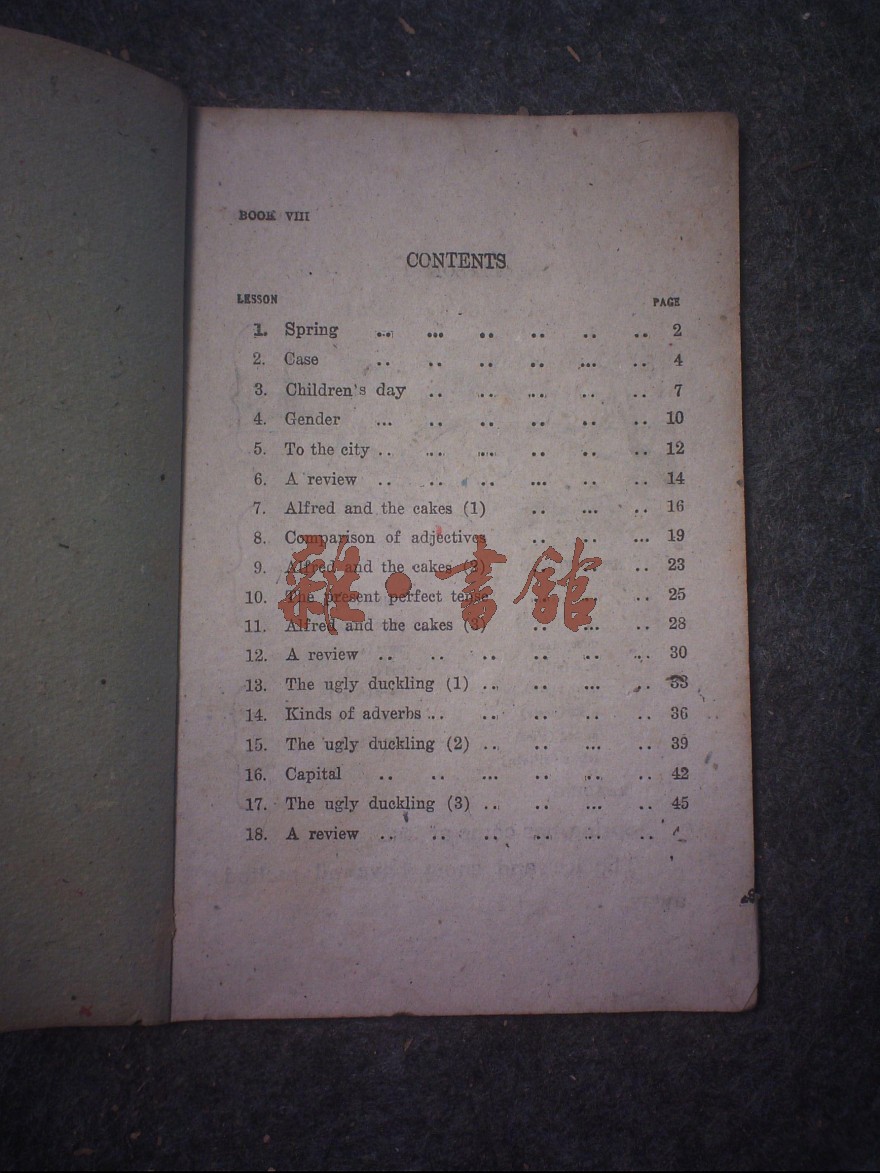 BOOK VIII
CONTENTS
LESSON PAGE
1. Spring .. ... .. .. .. .. 2
2. Case .. .. .. .. ... .. 4
3. Children's day .. .. ... .. .. 7
4. Gender ... .. .. .. .. .. 10
5. To the city .. ... ... .. .. .. 12
6. A review .. .. .. ... .. .. 14
7. Alfred and the cakes (1) .. ... .. 16
8. Comparison of adjectives .. .. ... 19
9. Alfred and the cakes (2) .. .. .. 23
10. The present perfect tense .. ... .. 25
11. Alfred and the cakes (3) .. ... .. 28
12. A review .. .. .. .. .. .. 30
13. The ugly duckling (1) .. .. ... .. 33
14. Kinds of adverbs .. .. .. .. .. 36
15. The ugly duckling (2) .. .. ... .. 39
16. Capital .. .. ... .. .. .. 42
17. The ugly duckling (3) .. .. ... .. 45
18. A review .. .. .. .. .. ..
雜·書館